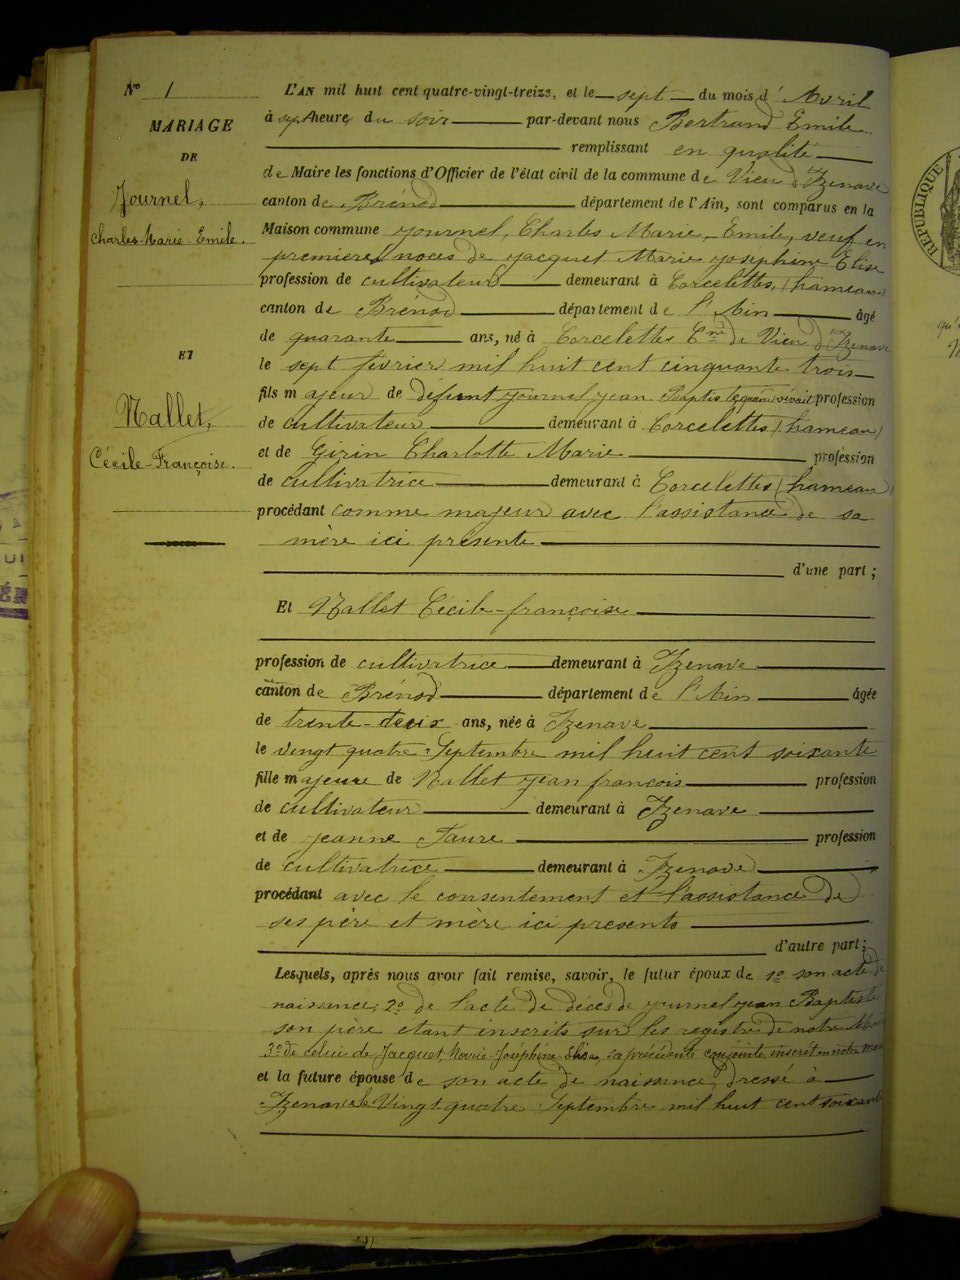 N° 1
MARIAGE
DE
Journel,
Charles-Marie-Emile.
ET
Nallet,
Cécile-Françoise.
L'AN mil huit cent quatre-vingt-treize, et le sept du mois d' Avril
à sept heures du soir par-devant nous Bertrand Emile
remplissant en qualité
de Maire les fonctions d'Officier de l'état civil de la commune de Vieu d'Izenave
canton de Brénod département de l'Ain, sont comparus en la
Maison commune Journel, Charles Marie, Emile, veuf en
premières noces de Jacquet Marie Josephine Elise
profession de cultivateur demeurant à Corcelettes, (hameau)
canton de Brénod département de l'Ain âgé
de quarante ans, né à Corcelettes Cne de Vieu d'Izenave
le sept février mil huit cent cinquante trois
fils majeur de défunt Journel Jean Baptiste quand vivait profession
de cultivateur demeurant à Corcelettes (hameau)
et de Girin Charlotte Marie profession
de cultivatrice demeurant à Corcelettes (hameau)
procédant comme majeur avec l'assistance de sa
mère ici présente
d'une part ;
Et Nallet Cécile-françoise
profession de cultivatrice demeurant à Izenave
canton de Brénod département de l'Ain âgée
de trente-deux ans, née à Izenave
le vingt quatre Septembre mil huit cent soixante
fille majeure de Nallet Jean françois profession
de cultivateur demeurant à Izenave
et de Jeanne Faure profession
de cultivatrice demeurant à Izenave
procédant avec le consentement et l'assistance de
ses père et mère ici présents
d'autre part ;
Lesquels, après nous avoir fait remise, savoir, le futur époux de 1° son acte de
naissance, 2° de l'acte de décès de Journel Jean Baptiste
son père étant inscrits sur les registre de notre
3° de celui de Jacquet, Marie-Joséphine-Elise, sa précédente conjointe, inscrit en notre
et la future épouse de son acte de naissance, dressé à
Izenave le Vingt-quatre Septembre mil huit cent soixante
RÉPUBLIQUE